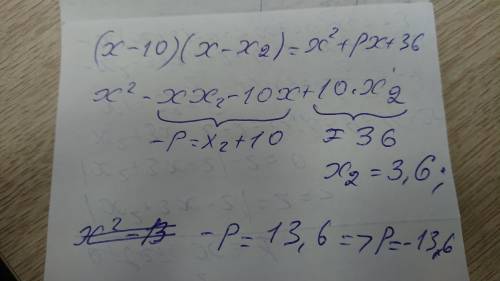 (x-10)(x-x₂)=x²+px+36
x²-xx₂-10x+10·x₂
-p=x₂+10 =36
x₂=3,6;
x²-13 -p=13,6=>p=-13,6